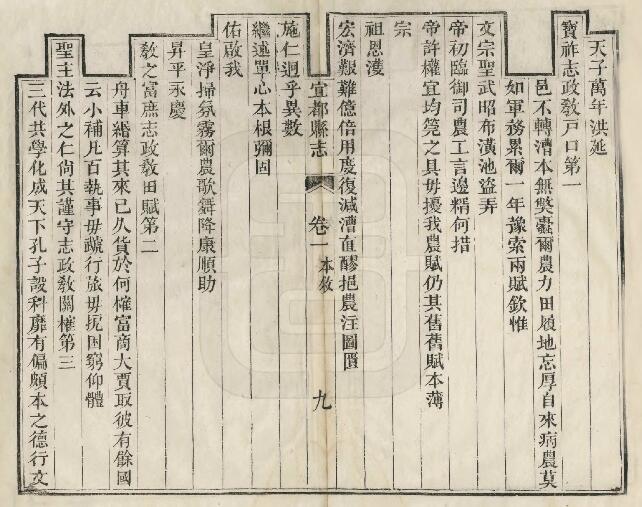 天子萬年洪延
寶祚志政教戶口第一
邑不轉漕本無獘蠧爾農力田履地忘厚自來病農莫
如軍務累爾一年豫索兩賦欽惟
文宗聖武昭布潢池盜弄
帝初臨御司農工言邊糈何措
帝許權宜均筦之具毋擾我農賦仍其舊舊賦本薄
宗
祖恩濩
宏濟艱難億倍用慶復減漕
宜都縣志 卷一 本敘 九
施仁迥乎異數
繼述單心本根彌固
佑啟我
皇淨掃氛霧爾農歌舞降康順助
昇平永慶
教之富庶志政教田賦第二
舟車緡算其來已久貨於何榷富商大賈取彼有餘國
云小補凡百執事毋虣行旅毋扼困窮仰體
聖主法外之仁尙其謹守志政教關權第三
三代共學化成天下孔子設科靡有偏頗本之德行文